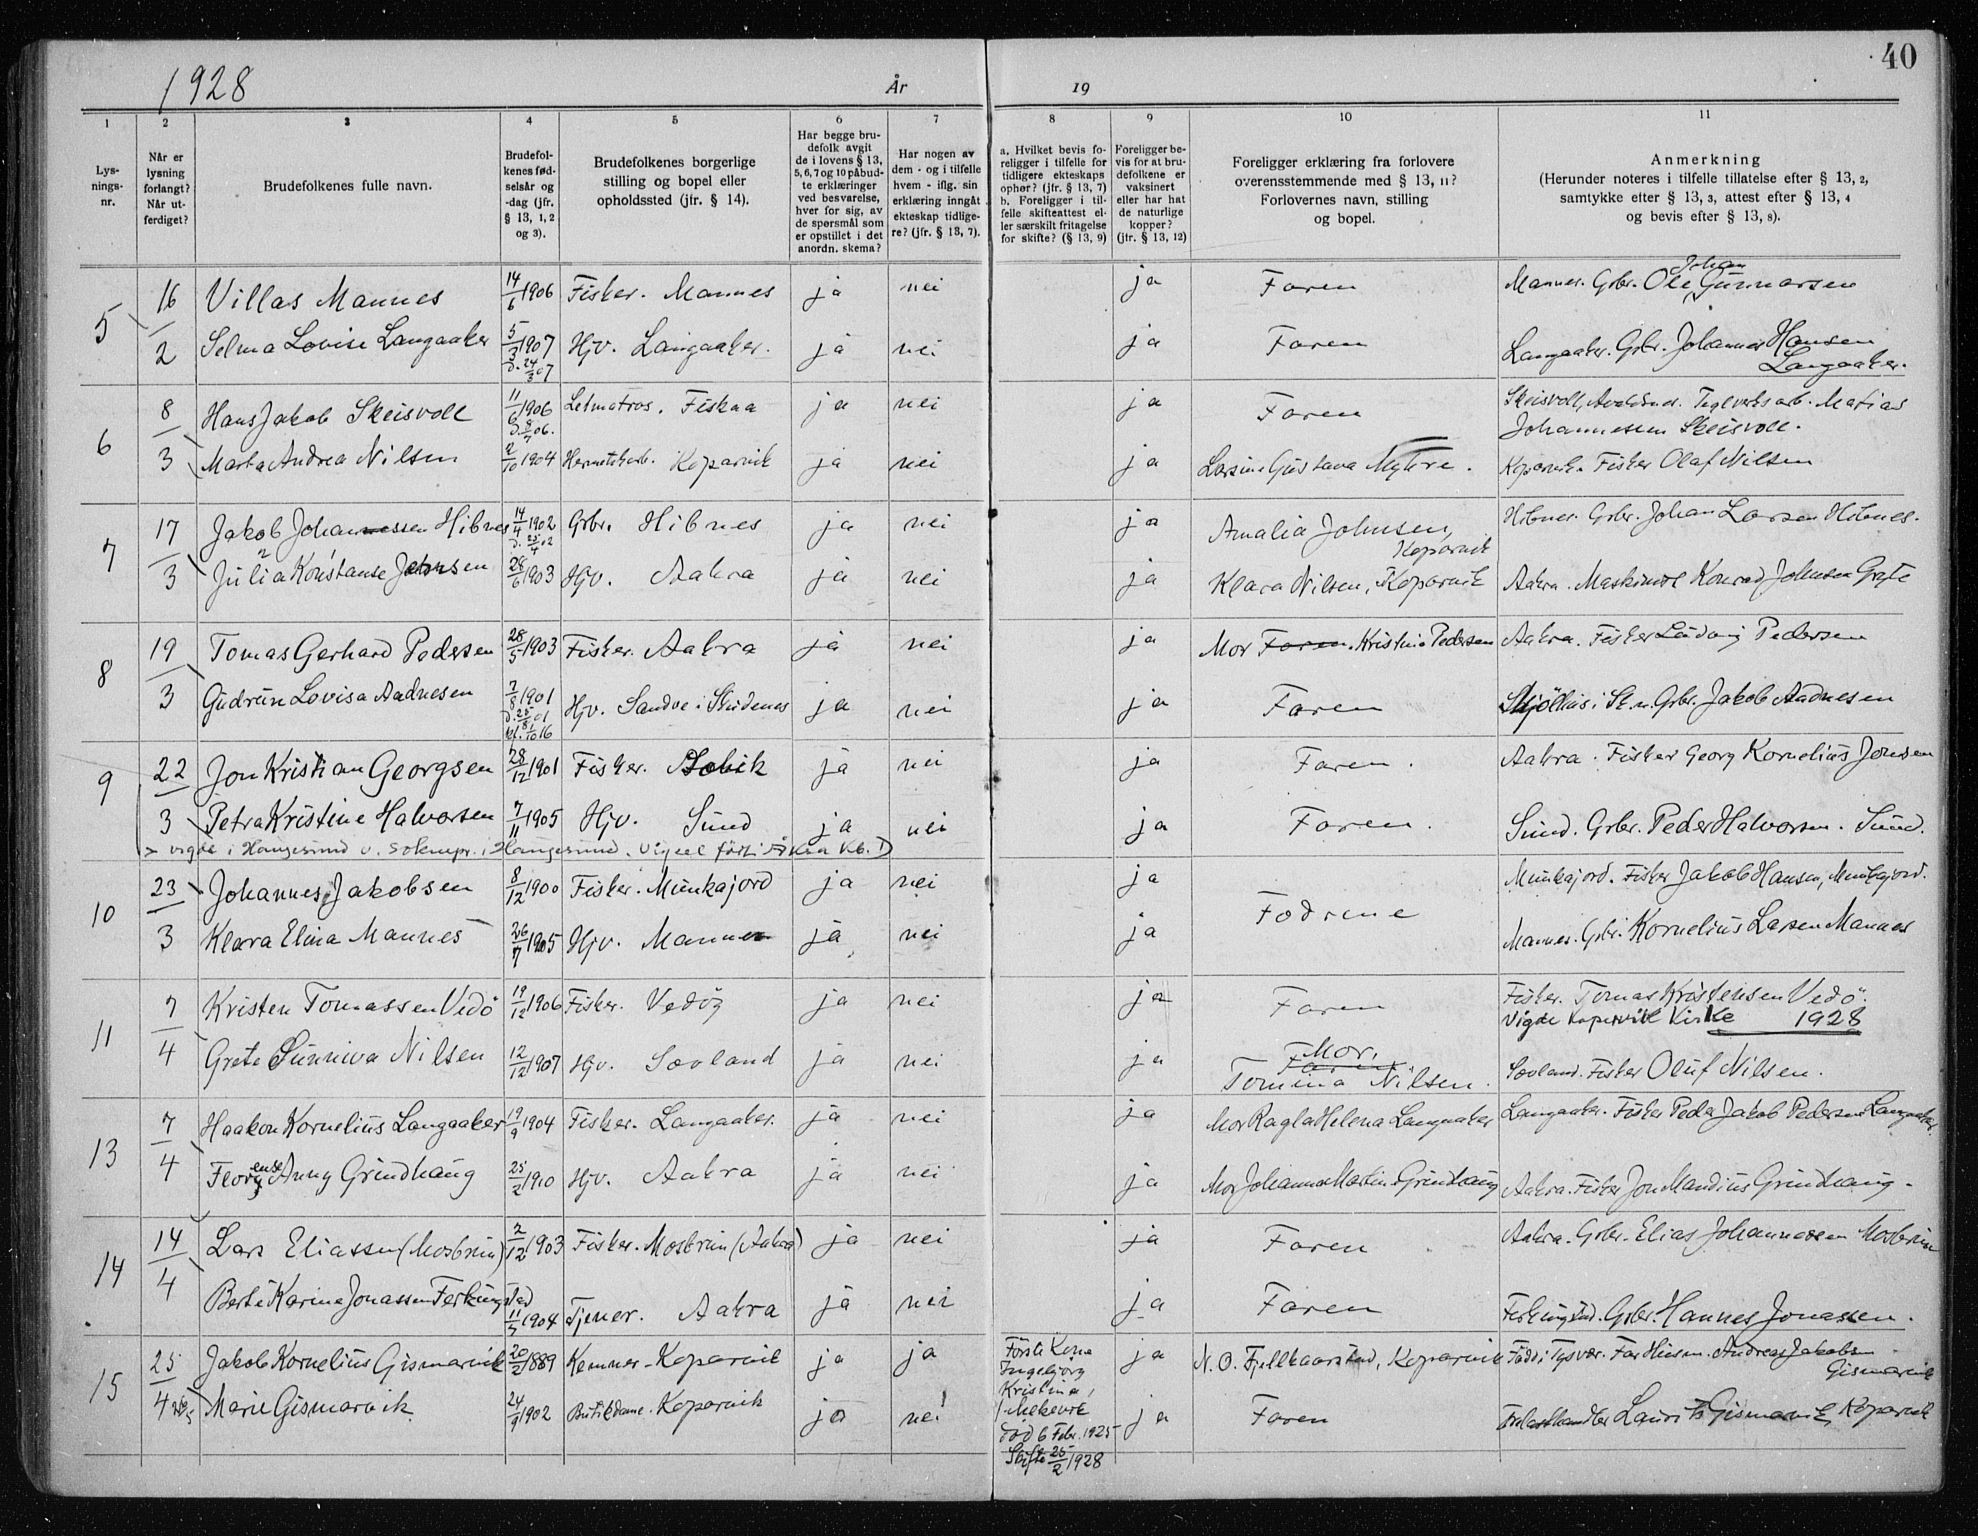 1928
År
19
40
1 2 3 4 5 6 7 8 9 10 11
Lys-
nings-
nr.
Når er
lysning
forlangt?
Når ut-
ferdiget?
Brudefolkenes fulle navn.
Brudefol-
kenes fød-
selsår og
-dag (jfr.
§ 13, 1, 2
og 3).
Brudefolkenes borgerlige
stilling og bopel eller
opholdssted (jfr. § 14).
Har begge bru-
defolk avgit
de i lovens § 13,
5, 6, 7 og 10 påbud-
te erklæringer
ved besvarelse,
hver for sig, av
de spørsmål som
er opstillet i det
anordn. skema?
Har nogen av
dem - og i tilfelle
hvem - iflg. sin
erklæring inngåt
ekteskap tidlige-
re? (jfr. § 13, 7).
a. Hvilket bevis fo-
religger i tilfelle for
tidligere ekteskaps
ophør? (jfr. § 13, 7)
b. Foreligger i til-
felle skifteattest el-
ler særskilt fritagelse
for skifte? (§ 13, 9)
Foreligger be-
vis for at bru-
defolkene er
vaksinert
eller har hat
de naturlige
kopper?
(jfr. § 13, 12)
Foreligger erklæring fra forlovere
overensstemmende med § 13, 11?
Forlovernes navn, stilling
og bopel.
Anmerkning
(Herunder noteres i tilfelle tillatelse efter § 13, 2,
samtykke etter § 13, 3, attest efter § 13, 4
og bevis efter § 13, 8).
5 16/2 Villas Mannes 14/6 1906 Fisker. Mannes ja nei ja Faren Mannes. Grbr. Ole Johan Gunnarsen
Selma Lovise Langaaker 5/3 1907 d. 24/3 07 Hjv. Langaaker. ja nei ja Faren Langaaker. Grbr. Johannes Hansen
Langaaker.
6 8/3 Hans Jakob Skeisvoll 11/6 1906 d. 8/7 06. Letmatros. Fiskaa ja nei ja Faren Skeisvoll, Avaldsnes. Teglverksarb. Matias
Johannesen Skeisvoll.
Marta Andrea Nilsen 2/10 1904 Hermetikarb. Kopervik ja nei ja Larsine Gustava Myhre. Kopervik. Fisker Olaf Nilsen
7 17/3 Jakob Johannessen Hibnes 14/4 1902 d. 25/4 02 Grbr. Hibnes ja nei ja Amalia Johnsen,
Kopervik Hibnes. Grbr. Johan Larsen Hibnes.
Julia Konstanse Johnsen 28/6 1903 Hjv. Aakra ja nei ja Klara Nilsen, Kopervik Aakra. Konrad Johnsen
8 19/3 Tomas Gerhard Pedersen 28/5 1903 Fisker. Aakra ja nei ja Mor Faren. Kristine Pedersen Aakra. Fisker Ludvig Pedersen
Gudrun Lovisa Aadnesen 7/8 1901 d. 25/8 01 kf. 8/10 16 Hjv. Sandve i Skudenes ja nei ja Faren i Sk.n. Grbr. Jakob Aadnesen
9 22/3 Jon Kristian Georgsen 28/12 1901 Fisker. ja nei ja Faren. Aakra. Fisker Georg Kornelius Jonsen
Petra Kristine Halvorsen 7/11 1905 Hjv. Sund ja nei ja Faren. Sund. Grbr. Peder Halvorsen. Sund.
vigde i Haugesund v. soknepr. i Haugesund. Vigsel ført i Åkra Kb.
10 23/3 Johannes Jakobsen 8/12 1900 Fisker. Munkajord ja nei ja Fædrene Munkajord. Fisker Jakob Hansen, Munkajord.
Klara Elina Mannes 26/7 1905 Hjv. Mannes ja nei ja Mannes. Grbr. Kornelius Larsen Mannes
11 7/4 Kristen Tomassen Vedö 19/12 1906 Fisker. Vedöy ja nei ja Faren Fisker. Tomas Kristensen Vedö.
Vigde Kopervik Kirke 1928
Grete Sunniva Nilsen 12/12 1907 Hjv. Sævland ja nei ja Faren Mor,
Tomina Nilsen. Sævland. Fisker Oluf Nilsen.
13 7/4 Haakon Kornelius Langaaker 19/9 1904 Fisker. Langaaker. ja nei ja Mor Ragla Helena Langaaker Langaaker. Fisker Peder Jakob Pedersen Langaaker.
Anny Grindhaug 25/2 1910 Hjv. Aakra ja nei ja Mor Johanna Martine Grindhaug Aakra. Fisker Jon Mandius Grindhaug.
14 14/4 Lars Eliassen (Mosbrun) 2/12 1903 Fisker. Mosbrun (Aakra) ja nei ja Faren Aakra. Grbr. Elias Johannesen Mosbrun
Berte Karine Jonassen Ferkingstad 11/5 1904 Tjener. Aakra ja nei ja Faren Ferkingstad. Grbr. Hannes Jonassen.
15 25/4 Jakob Kornelius Gismarvik 20/2 1889 Kemner. Kopervik ja ja Første Kone
Ingebjørg
Kristina,
død 6 Febr. 1925
Skifte 25/2 1928 ja N. O. Fjellkaarstad, Kopervik Född i Tysvær. Far Husm. Andreas Jakobsen
Gismarvik
Marie Gismarvik 24/9 1902 Butikdame. Kopervik ja nei ja Faren Lauritz Gismarvik, Kopervik